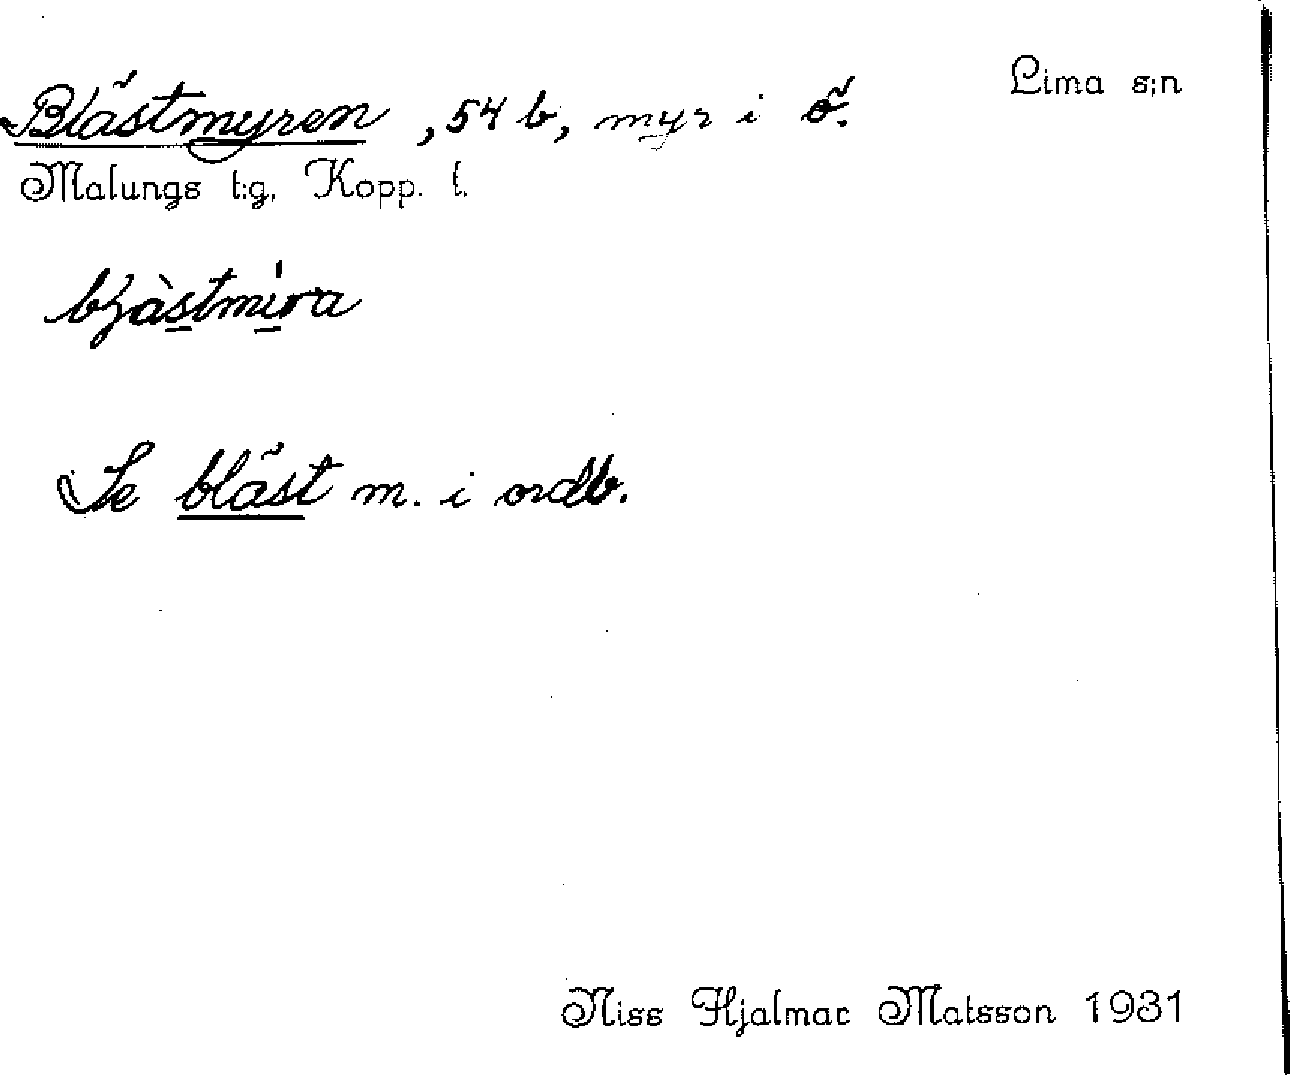 Blåstmyren, 54 b, myr i ö. Lima s:n
Malungs t:g. Kopp. l.
Se blåst m. i ordb.
Niss Hjalmar Matsson 1931